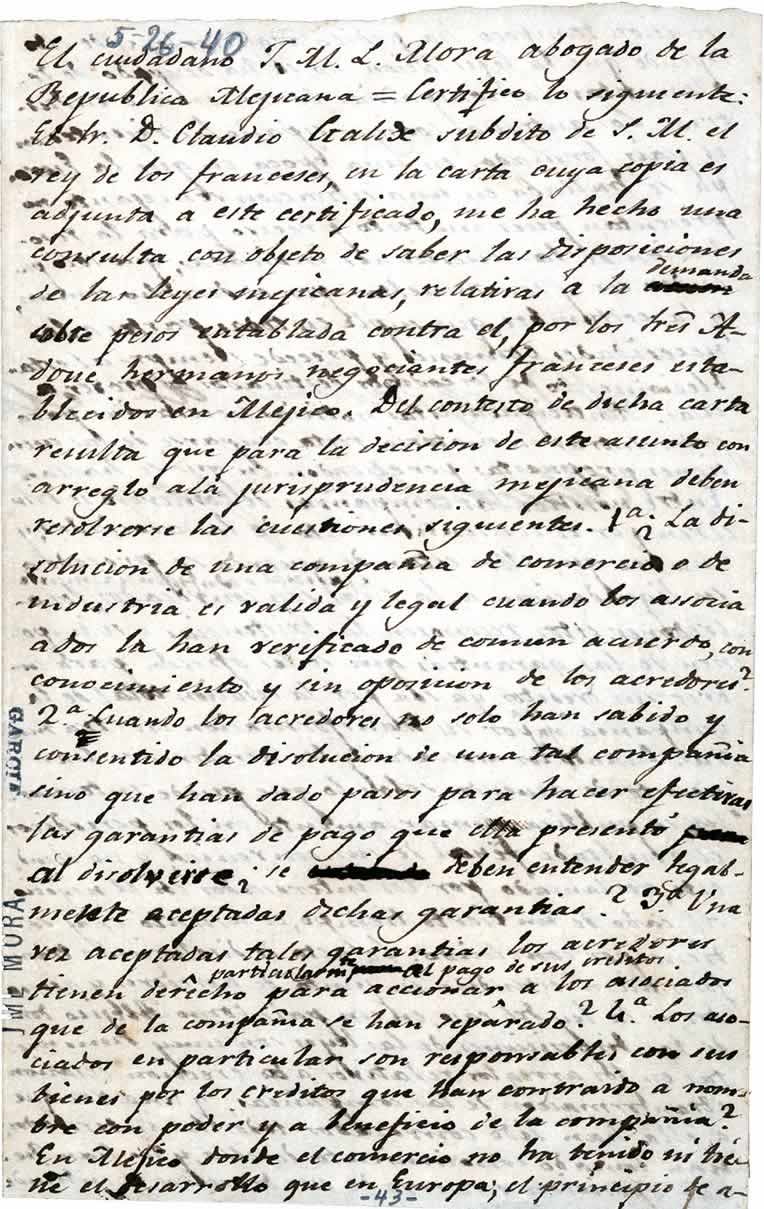 5-26-40
El ciudadano J. M. L. Mora abogado de la
Republica Mejicana = Certifico lo siguiente:
El Sr. D. Claudio subdito de S. M. el
rey de los franceses, en la carta cuya copia es
adjunta a este certificado, me ha hecho una
consulta con objeto de saber las disposiciones
de las leyes mejicanas, relativas a la demanda
sobre pesos entablada contra el, por los tres A-
doue hermanos negociantes franceses esta-
blecidos en Mejico. Del contesto de dicha carta
resulta que para la decision de este asunto con
arreglo ala jurisprudencia mejicana deben
resolverse las cuestiones siguientes. 1ª. La di-
solucion de una compañia de comercio o de
industria es valida y legal cuando los associa
ados la han verificado de comun acuerdo, con
conocimiento y sin oposicion de los acredores?
2.ª Cuando los acredores no solo han sabido y
consentido la disolucion de una tal compañia
sino que han dado pasos para hacer efectivas
las garantias de pago que ella presentó
al disolverse; se deben entender legal-
mente aceptadas dichas garantias? 3ª Una
vez aceptadas tales garantias los acredores
tienen derecho para accionar particularmte al pago de sus creditos a los asociados
que de la compañia se han separado? 4.ª Los aso-
ciados en particular son responsables con sus
bienes por los creditos que han contraido a nom-
bre con poder y a beneficio de la compañia?
En Mejico donde el comercio no ha tenido ni tie-
ne el desarrollo que en Europa; el principio de a-
-43-
GARCIA
JME MORA